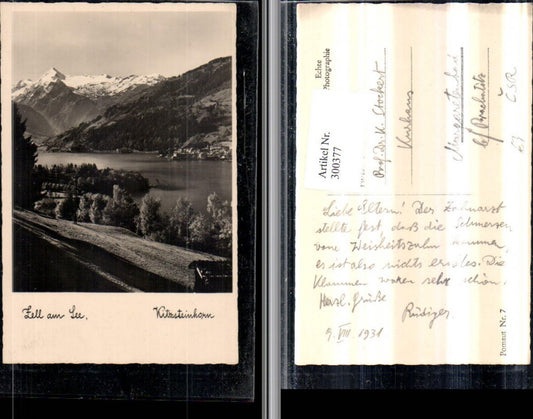 Zell am See.
Kitzsteinhorn
Echte
Photographie
Artikel Nr.
300377
Prof. Dr. K. Stockert
Kurhaus
Margaretenbad
b/ Prachatitz
ČSR
63
Liebe Eltern! Der Zahnarzt
stellte fest, daß die Schmerzen
vom Weisheitszahn kommen,
es ist also nichts ernstes. Die
Klammen waren sehr schön.
Herzl. Grüße
Rüdiger
9. VIII 1931
Pomnot Nr. 7